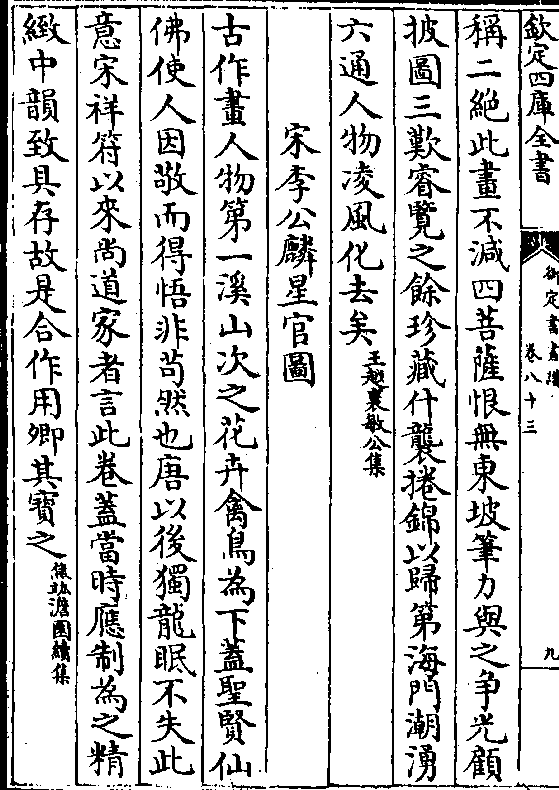 欽定四庫全書
御定書畫譜
卷八十三
九
稱二絶此畫不減四菩薩恨無東坡筆力與之争光顧
披圖三歎睿覽之餘珍藏什襲捲錦以歸第海門潮湧
六通人物凌風化去矣王越襄敏公集
宋李公麟星官圖
古作畫人物第一溪山次之花卉禽鳥為下蓋聖賢仙
佛使人因敬而得悟非苟然也唐以後獨龍眠不失此
意宋祥符以來尚道家者言此卷蓋當時應制為之精
緻中韻致具存故是合作用卿其寶之孫竑澹園續集